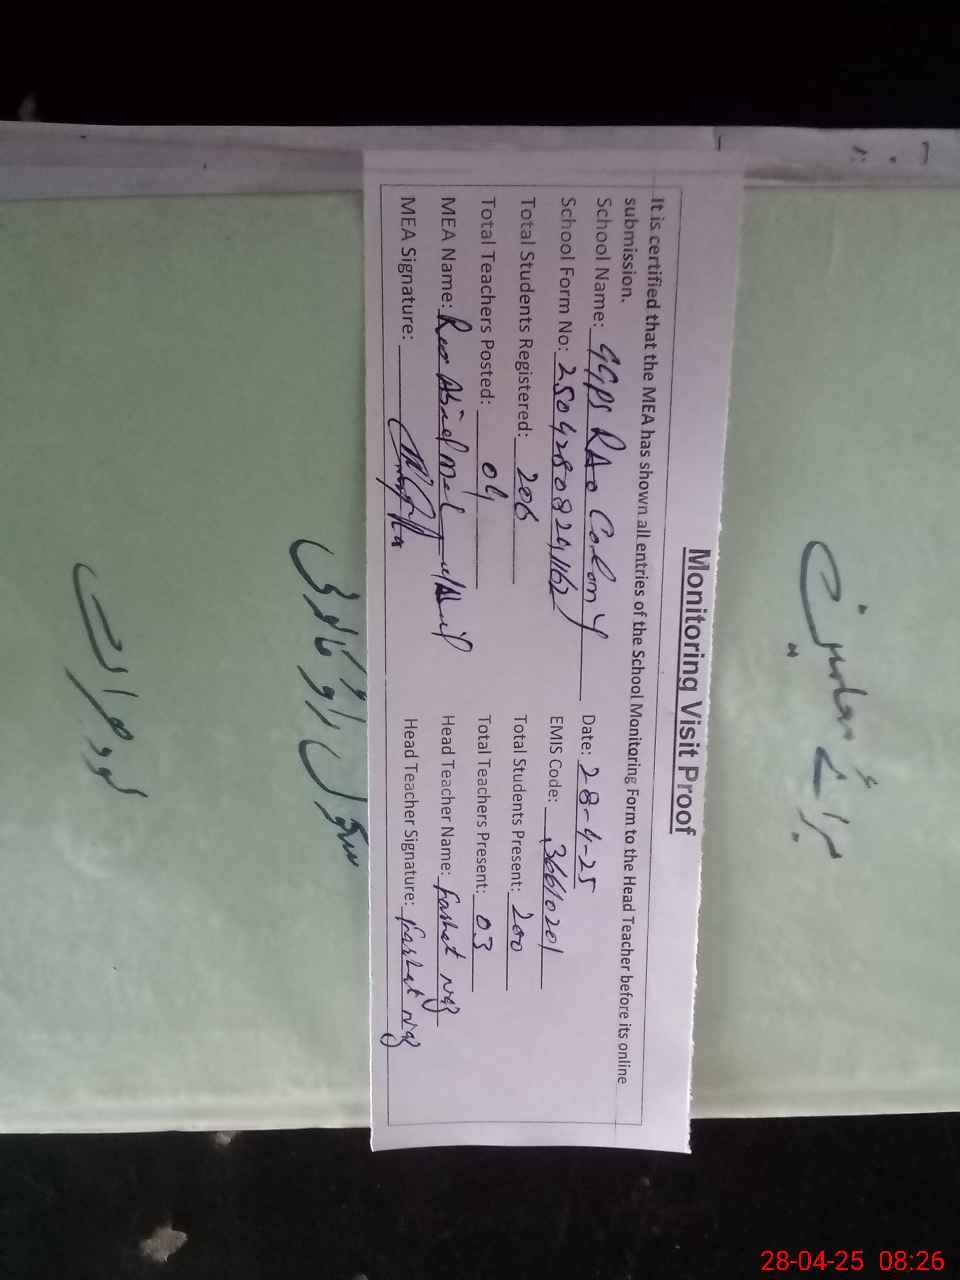 برائے معائینہ
Monitoring Visit Proof
It is certified that the MEA has shown all entries of the School Monitoring Form to the Head Teacher before its online
submission.
School Name: GGPS RAo Colony Date: 28-4-25
School Form No: 25042808241162 EMIS Code: 36610201
Total Students Registered: 206 Total Students Present: 200
Total Teachers Posted: 04 Total Teachers Present: 03
MEA Name: Head Teacher Name: Farhat naz
MEA Signature: Head Teacher Signature: Farhat naz
سکول راؤ کالونی
28-04-25 08:26